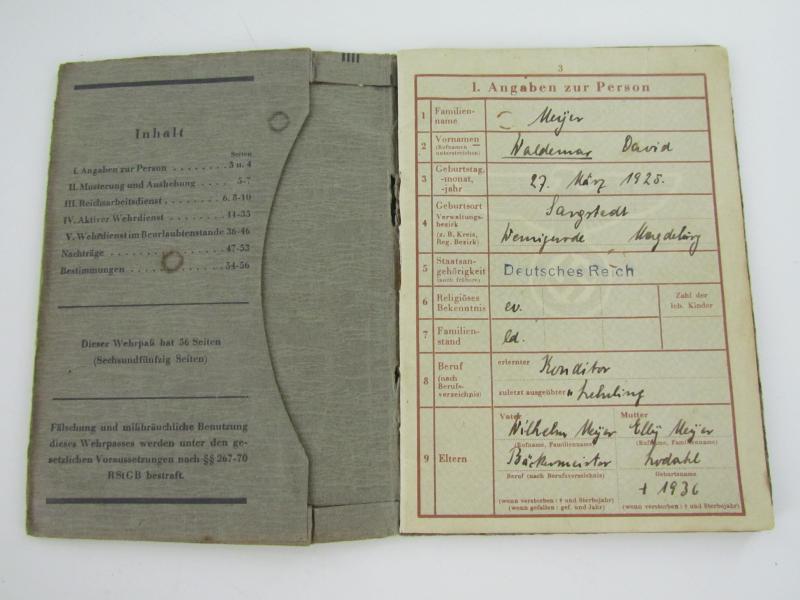 Inhalt
Seiten
I. Angaben zur Person . . . . . . . 3 u. 4
II. Musterung und Aushebung . . . . 5-7
III. Reichsarbeitsdienst . . . . . . . 6, 8-10
IV. Aktiver Wehrdienst . . . . . . . 11-35
V. Wehrdienst im Beurlaubtenstande 36-46
Nachträge . . . . . . . . . . . . 47-53
Bestimmungen . . . . . . . . . . 54-56
Dieser Wehrpaß hat 56 Seiten
(Sechsundfünfzig Seiten)
Fälschung und mißbräuchliche Benutzung
dieses Wehrpasses werden unter den ge-
setzlichen Voraussetzungen nach §§ 267-70
RStGB bestraft.
3
I. Angaben zur Person
1 Familien-
name
Meyer
2 Vornamen
(Rufnamen
unterstreichen)
Waldemar David
3 Geburtstag,
-monat,
-jahr
27. März 1925.
4 Geburtsort
Verwaltungs-
bezirk
(z. B. Kreis,
Reg. Bezirk)
Sargstedt
Wernigerode Magdeburg
5 Staatsan-
gehörigkeit
(auch frühere)
Deutsches Reich
6 Religiöses
Bekenntnis
ev.
Zahl der
leb. Kinder
7 Familien-
stand
ld.
8 Beruf
(nach
Berufs-
verzeichnis)
erlernter Konditor
zuletzt ausgeübter " Lehrling
9 Eltern
Vater
Wilhelm Meyer
(Rufname, Familienname)
Bäckermeister
Beruf (nach Berufsverzeichnis)
(wenn verstorben: † und Sterbejahr)
(wenn gefallen: gef. und Jahr)
Mutter
Elly Meyer
(Rufname, Familienname)
Geburtsname
† 1936
(wenn verstorben: † und Sterbejahr)